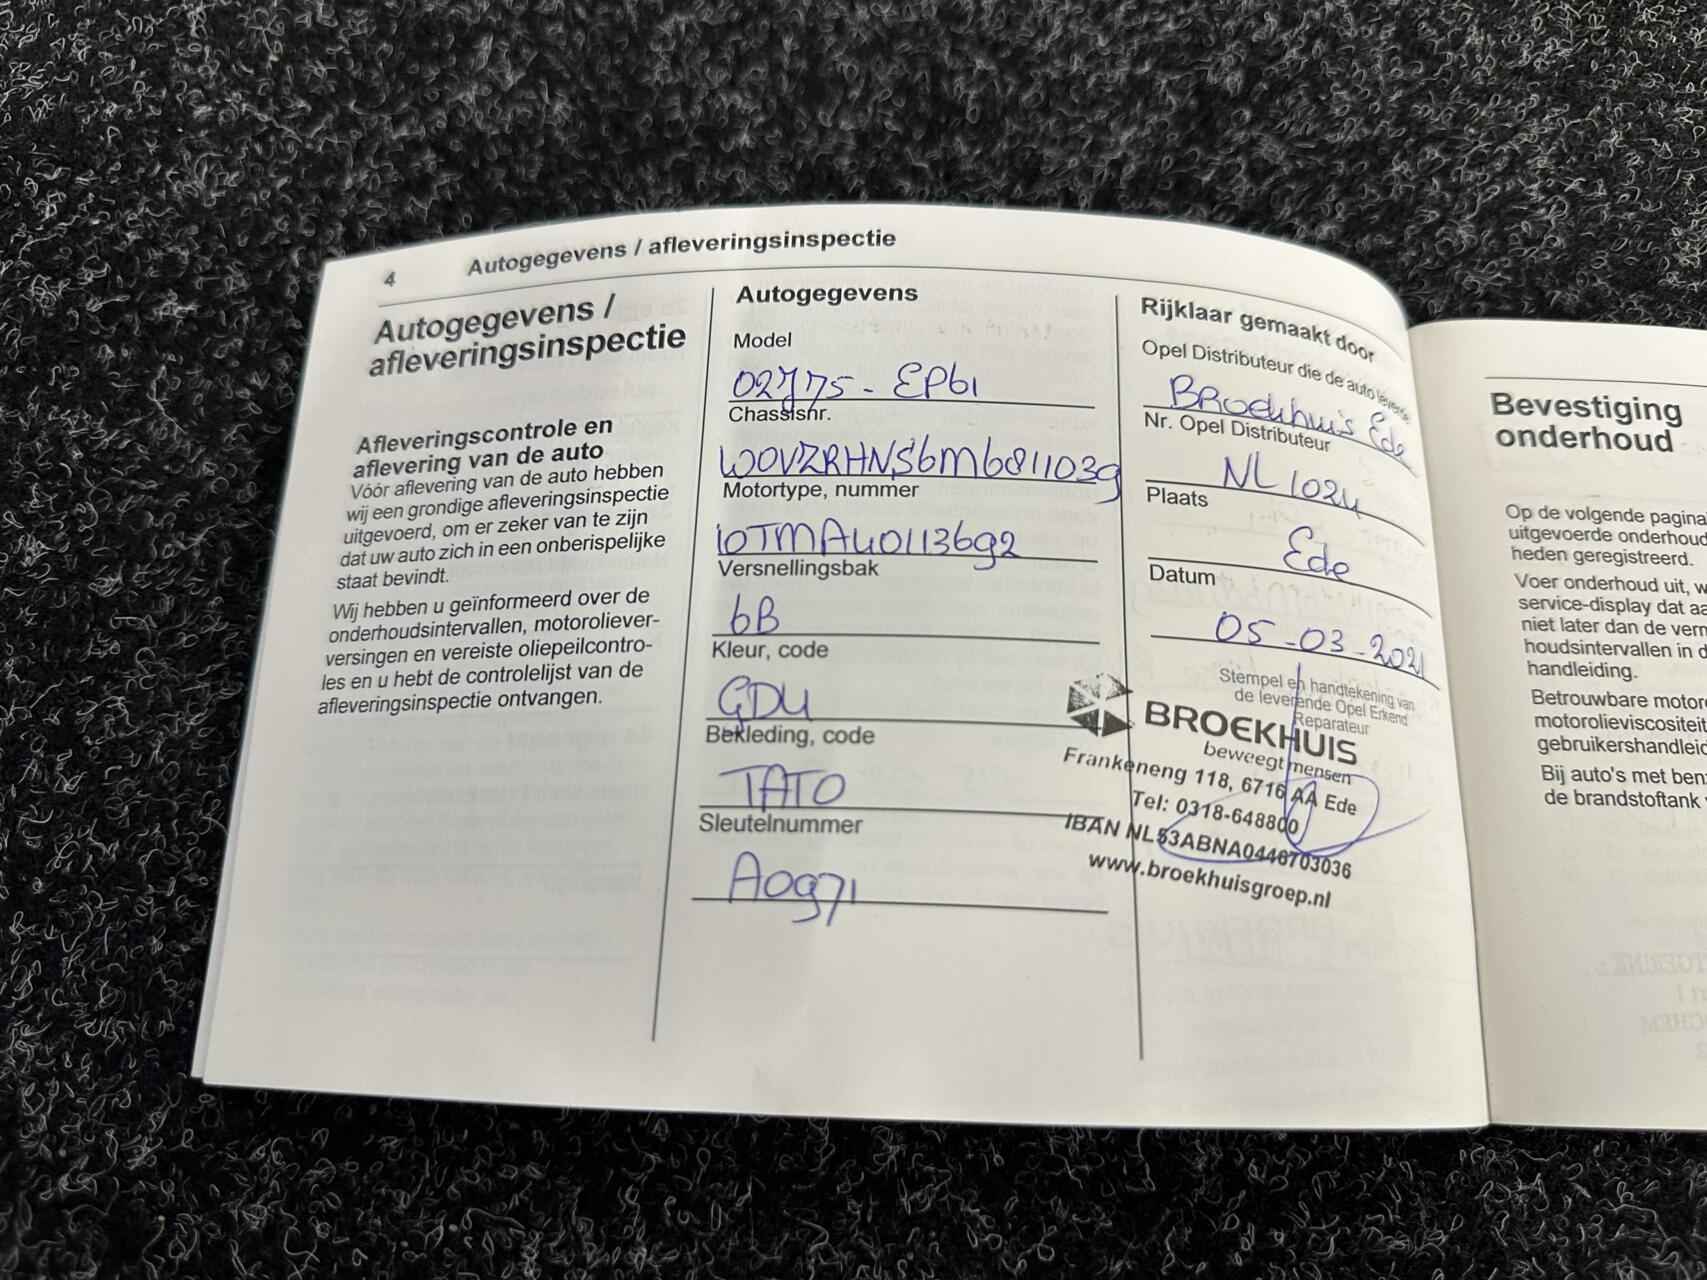 4
Autogegevens / afleveringsinspectie
Autogegevens /
afleveringsinspectie
Afleveringscontrole en
aflevering van de auto
Vóór aflevering van de auto hebben
wij een grondige afleveringsinspectie
uitgevoerd, om er zeker van te zijn
dat uw auto zich in een onberispelijke
staat bevindt.
Wij hebben u geïnformeerd over de
onderhoudsintervallen, motoroliever-
versingen en vereiste oliepeilcontro-
les en u hebt de controlelijst van de
afleveringsinspectie ontvangen.
Autogegevens
Model
02775 - EP61
Chassisnr.
W0VZRHNS6M6811039
Motortype, nummer
10TMAU0113692
Versnellingsbak
6B
Kleur, code
GDU
Bekleding, code
TATO
Sleutelnummer
A0971
Rijklaar gemaakt door
Opel Distributeur die de auto levert
Broekhuis Ede
Nr. Opel Distributeur
NL 1024
Plaats
Ede
Datum
05-03-2021
Stempel en handtekening van
de leverende Opel Erkend
Reparateur
BROEKHUIS
beweegt mensen
Frankeneng 118, 6716 AA Ede
Tel: 0318-648800
IBAN NL53ABNA0446703036
www.broekhuisgroep.nl
Bevestiging
onderhoud
Op de volgende pagina
uitgevoerde onderhoud
heden geregistreerd.
Voer onderhoud uit, w
service-display dat aa
niet later dan de verm
houdsintervallen in d
handleiding.
Betrouwbare motor
motorolieviscositeit
gebruikershandleid
Bij auto's met ben
de brandstoftank